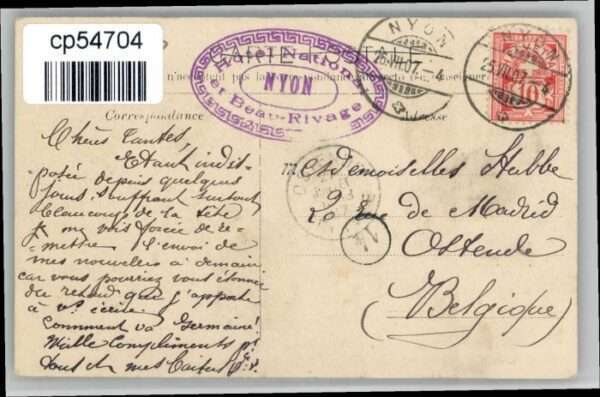 cp54704
CARTE POSTALE
Hôtel National
et Beau-Rivage
NYON
NYON
25.VII.07. - 4
NYON
25.VII.07. - 4
10
Correspondance
Adresse
Chères Tantes,
Etant indis-
posée depuis quelques
jours, souffrant surtout
beaucoup de la tête
je me vois forcée de re-
mettre l'envoi de
mes nouvelles à demain
car vous pourriez vous étonner
du retard que j'apporte
à vs écrire.
Comment va Germaine?
Mille compliments pr
tous et mes
Mesdemoiselles Hubbe
9
rue de Madrid
Ostende
(Belgique)
14